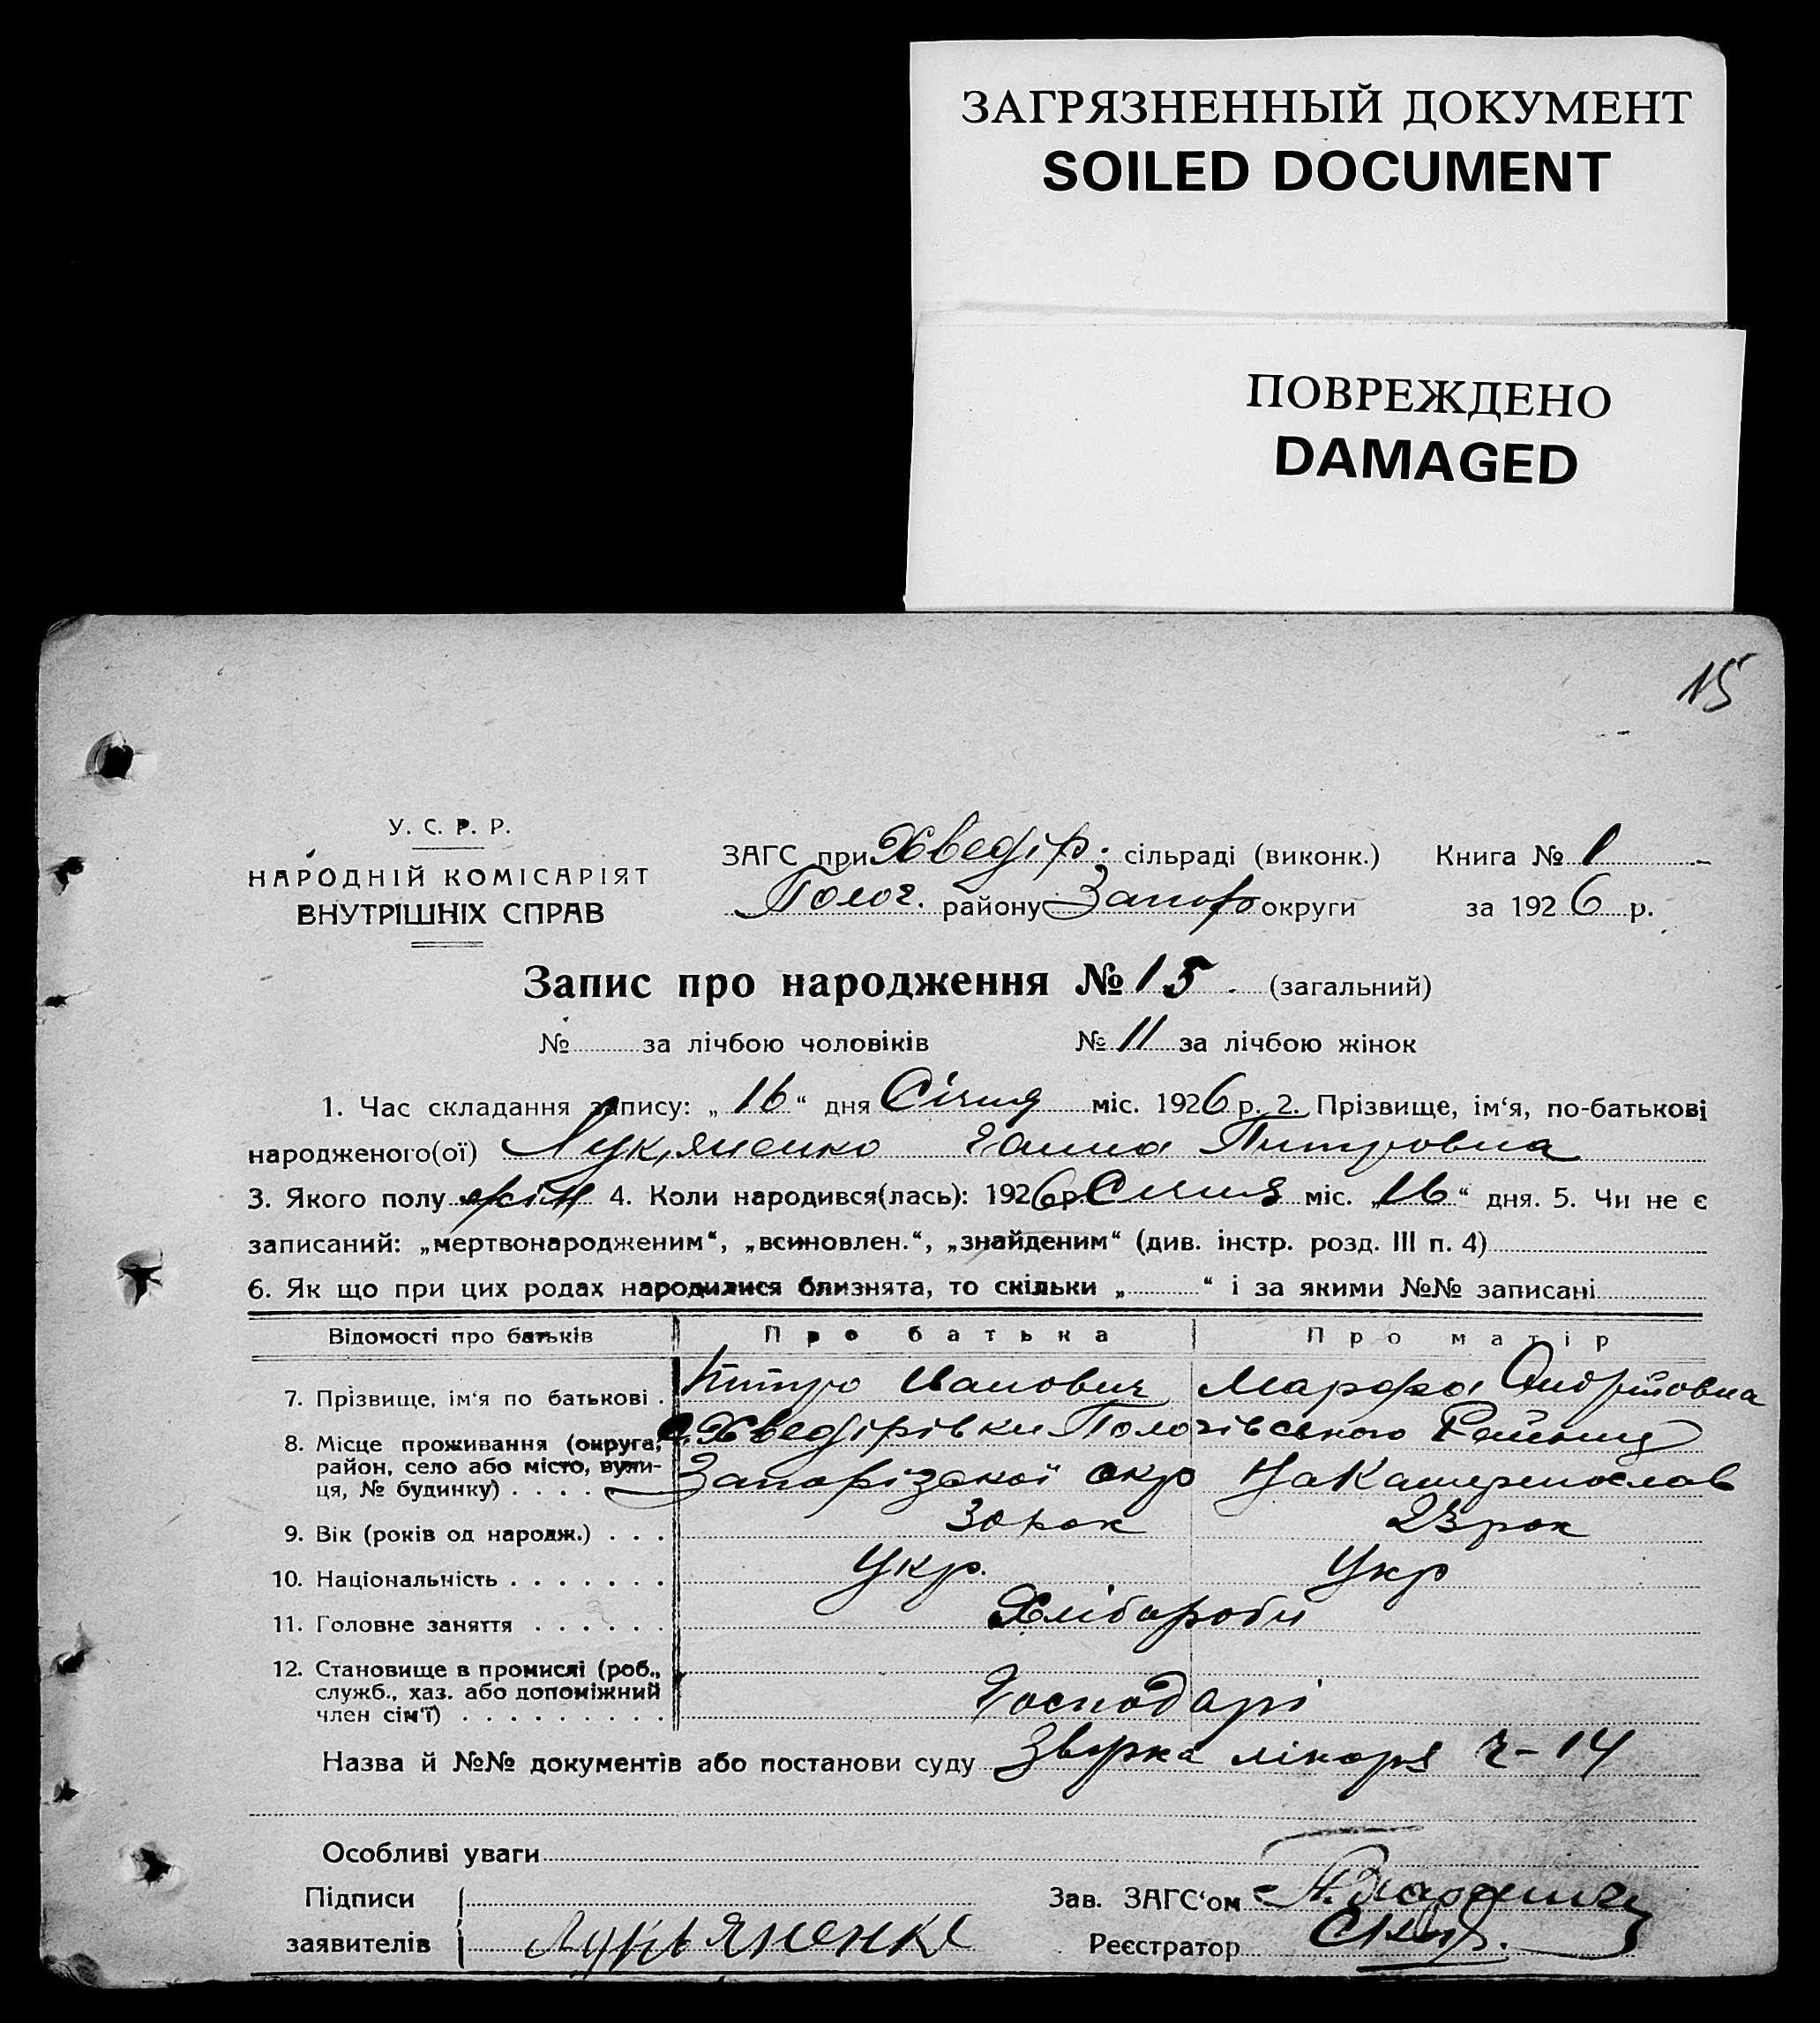 ЗАГРЯЗНЕННЫЙ ДОКУМЕНТ
SOILED DOCUMENT
ПОВРЕЖДЕНО
DAMAGED
15
У. С. Р. Р.
НАРОДНІЙ КОМІСАРІЯТ
ВНУТРІШНІХ СПРАВ
ЗАГС при Хведір. сільраді (виконк.) Книга № 1
Полог. району Запор округи за 1926 р.
Запис про народження № 15. (загальний)
№ за лічбою чоловіків № 11 за лічбою жінок
1. Час складання запису: „16“ дня Січня міс. 1926 р. 2. Прізвище, ім‘я, по-батькові
народженого(ої) Лук,яненко Ганна Питровна
3. Якого полу жін 4. Коли народився(лась): 1926 р. Січня міс. „16“ дня. 5. Чи не є
записаний: „мертвонародженим“, „всиновлен.“, „знайденим“ (див. інстр. розд. III п. 4)
6. Як що при цих родах народилися близнята, то скільки „ “ і за якими №№ записані
Відомості про батьків Про батька Про матір
7. Прізвище, ім‘я по батькові . Питро Иванович Марфа
8. Місце проживання (округа, с. Хведірівки Пологівського Району
район, село або місто, вули-
ця, № будинку) . . . . Запорізької окр
9. Вік (років од народж.) . . . 30 рок 23 рок
10. Національність . . . . . . . Укр. Укр
11. Головне заняття . . . . . . Хлібороби
12. Становище в промислі (роб.,
служб., хаз. або допоміжний
член сім‘ї) . . . . . . . . . Господарі
Назва й №№ документів або постанови суду лікаря ч-14
Особливі уваги
Підписи
заявителів Лукьяненко
Зав. ЗАГС‘ом
Реєстратор